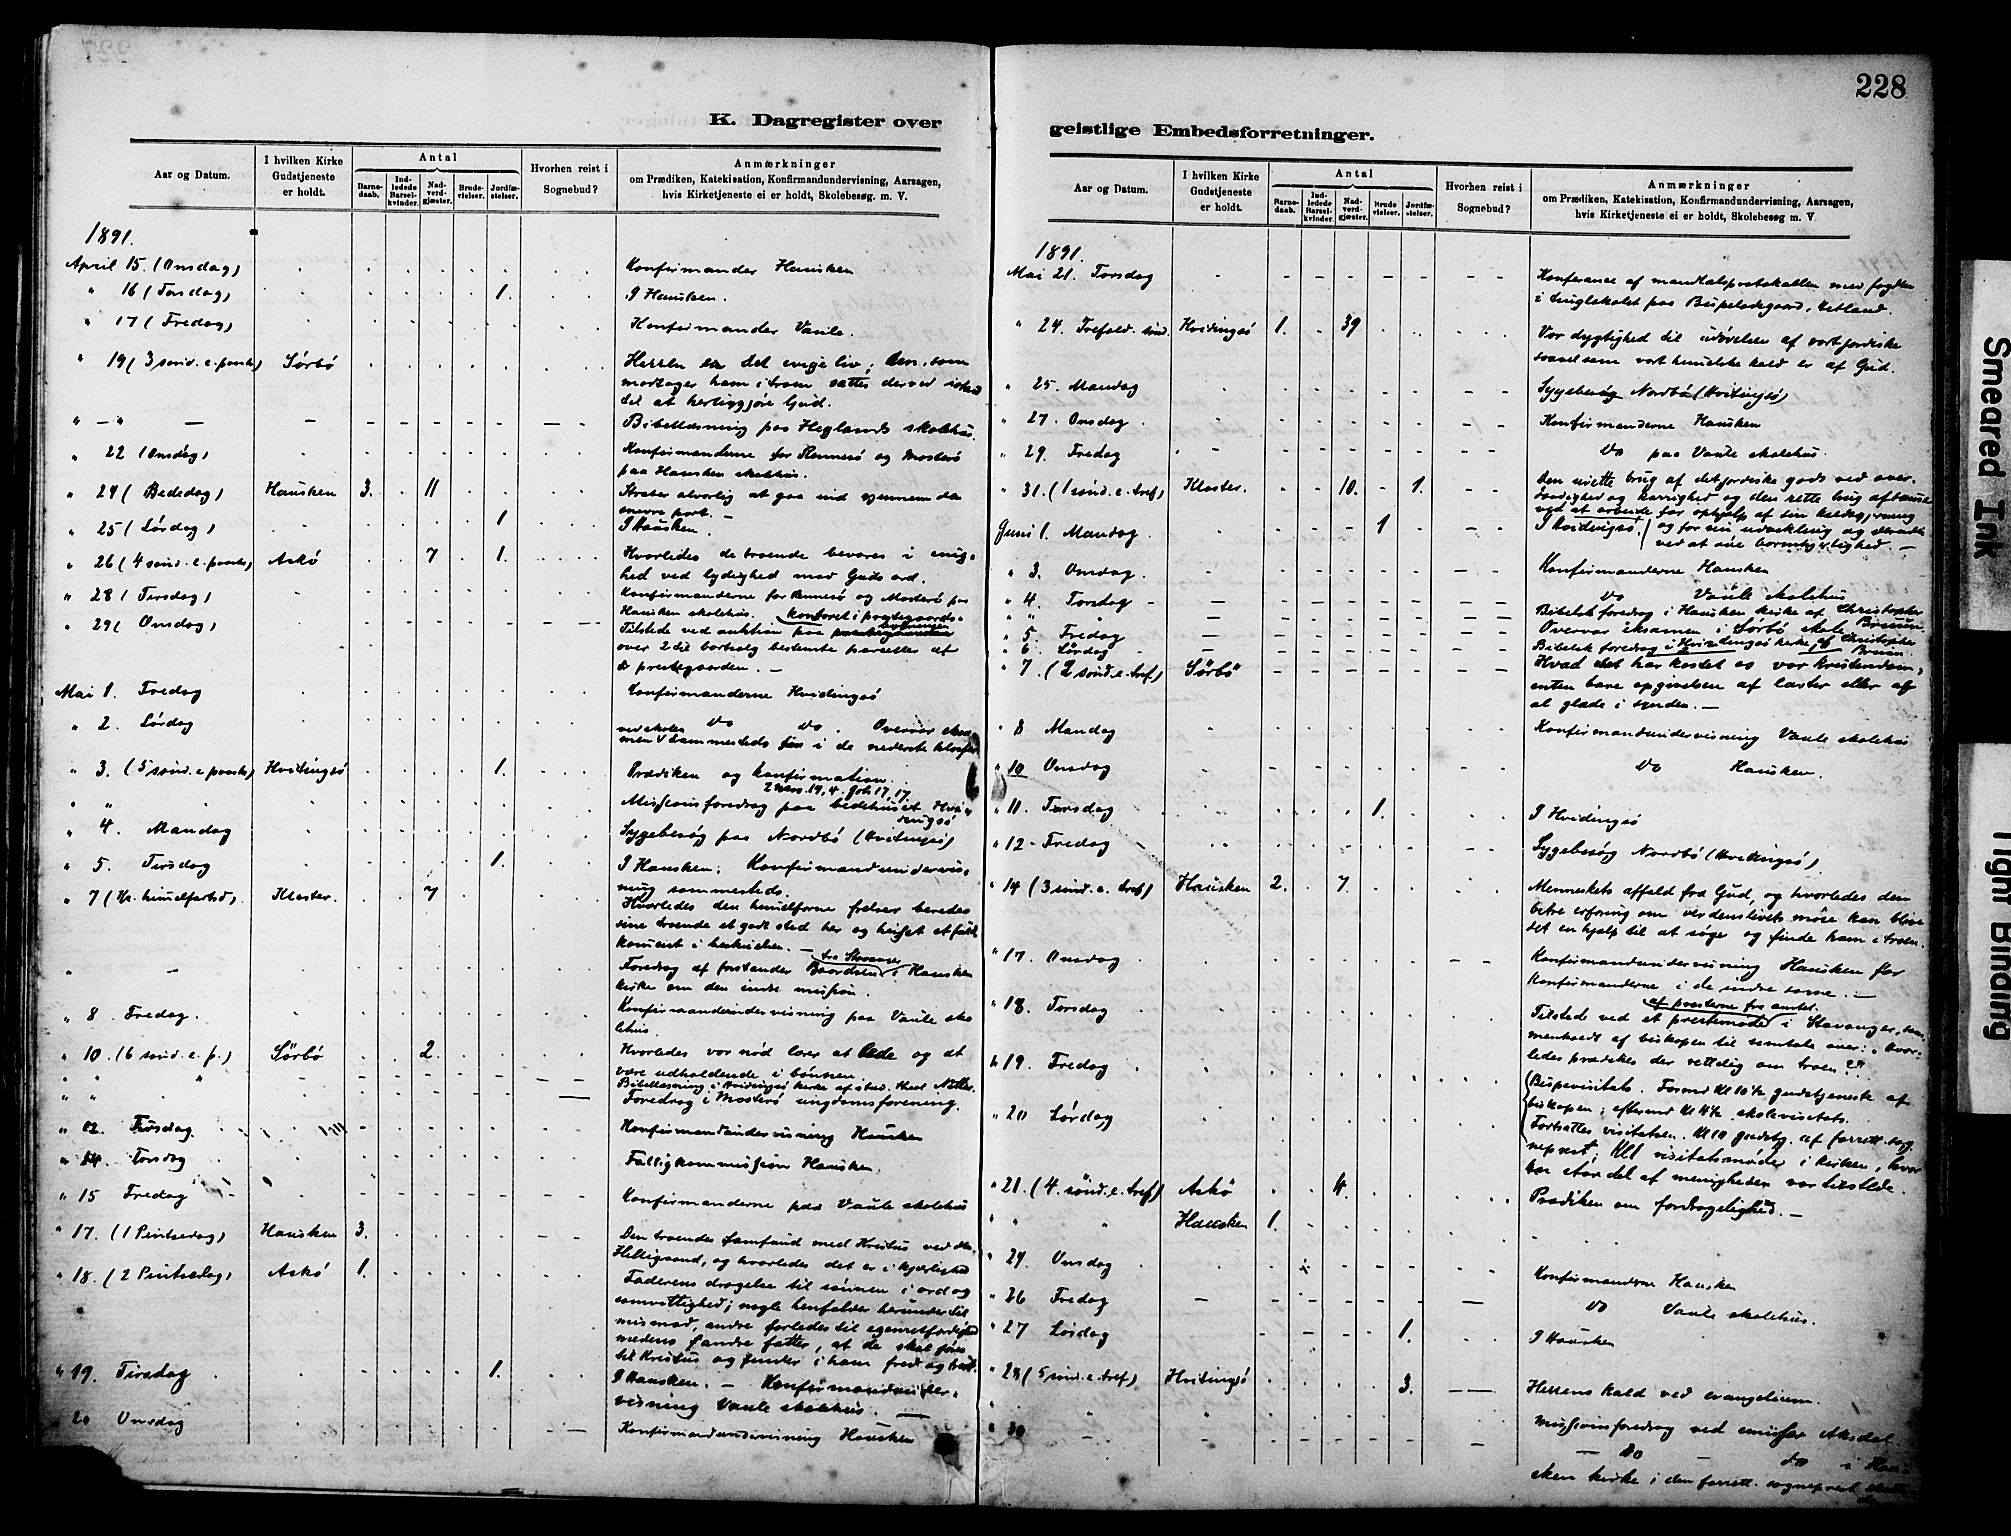 228
K. Dagregister over
Aar og Datum.
I hvilken Kirke Gudstjeneste er holdt.
Antal
Barnedaab.
Indledede Barselkvinder.
Nadverdgjæster.
Brudevielser.
Jordfæstelser.
Hvorhen reist i Sognebud?
Anmærkninger
om Prædiken, Katekisation, Konfirmandundervisning, Aarsagen,
hvis Kirketjeneste ei er holdt, Skolebesøg. m. V.
1891.
April 15. (Onsdag) Konfirmander Hausken
" 16 (Torsdag) 1. I Hausken.
" 17 (Fredag) Konfirmander Vaule.
" 19 (3 sønd. e. paaske) Sørbø Herren er det evige liv; den, som
modtager ham i troen sættes derved istand
til at herliggjøre Gud.
" — " — Bibellæsning paa Heglands skolehus.
" 22 (Onsdag) Konfirmanderne for Rennesø og Mosterø
paa Hausken skolehus.
" 24 (Bededag) Hausken 3. 11 Kræver alvorlig at gaa ind gjennem den
snevre port. —
" 25 (Lørdag) 1 I Hausken.
" 26 (4 sønd. e. paaske) Askø 7 1. Hvorledes de troende bevares i enig-
hed ved lydighed mod Guds ord.
" 28 (Tirsdag) Konfirmanderne for Rennesø og Mosterø paa
Hausken skolehus.
" 29 (Onsdag) Tilstede ved auktion paa kontoret i præstegaards-
bygningen
over 2 til bortsalg bestemte parceller af
præstegaarden. —
Mai 1. Fredag Konfirmanderne Hvidingsø
" 2. Lørdag do do. Overvær eksa-
men ved skolen sammesteds i de nederste klasser
" 3. (5 sønd. e. paaske) Hvidingsø 1. Prædiken og konfirmation.
" " Missionsforedrag paa bedehuset Hvi-
dingsø
" 4. Mandag Sygebesøg paa Nordbø (Hvidingsø)
" 5. Tirsdag 1. I Hausken. Konfirmandundervis-
ning sammesteds.
" 7 (Kr. himmelfartsd.) Kloster. 7 Hvorledes den himmelfarne frelser bereder
sine troende et godt sted her og hisset et fuld-
koment i herligheden. —
" — Foredrag af forstander Baardsen fra Stavanger i Hausken
kirke om den indre mission.
" 8 Fredag. Konfirmandundervisning paa Vaule sko-
lehus
" 10. (6 sønd. e. p.) Sørbø 2. Hvorledes vor nød lærer at bede og at
være udholdende i bønnen.
" " Bibellæsning i Hvidingsø kirke af
" " Foredrag i Mosterø ungdomsforening.
" 12. Tirsdag Konfirmandundervisning Hausken
" 14. Torsdag Fattigkommission Hausken.
" 15 Fredag Konfirmanderne paa Vaule skolehus
" 17. (1 Pintsedag) Hausken 3. Den troendes samfund med Kristus ved den
Helligaand, og hvorledes det er i kjærlighed
" 18. (2 Pintsedag) Askø 1. Faderens dragelse til sønnen i ord og
samvittighed; nogle henfalder herunder til
mismod, andre forledes til egenretfærdighed
medens andre fatter, at de skal føres
til Kristus og finder i ham fred og hvile.
" 19. Tirsdag 1. I Hausken. — Konfirmandunder-
visning Vaule skolehus. —
" 20 Onsdag Konfirmandundervisning Hausken
geistlige Embedsforretninger.
Aar og Datum.
I hvilken Kirke Gudstjeneste er holdt.
Antal
Barnedaab.
Indledede Barselkvinder.
Nadverdgjæster.
Brudevielser.
Jordfæstelser.
Hvorhen reist i Sognebud?
Anmærkninger
om Prædiken, Katekisation, Konfirmandundervisning, Aarsagen,
hvis Kirketjeneste ei er holdt, Skolebesøg m. V.
1891.
Mai 21. Torsdag Konferance af mandtalsprotokollen med fogden
i tinglokalet paa Bispeladegaard, Hetland.
" 24. Trefold. sønd. Hvidingsø 1. 39 Vor dygtighed til udøvelse af vort jordiske
saavel som vort himmelske kald er af Gud.
" 25. Mandag Sygebesøg Nordbø (Hvidingsø)
" 27. Onsdag Konfirmanderne Hausken
" 29. Fredag do paa Vaule skolehus.
" 31. (1 sønd. e. tref) Kloster. 10. 1. Den urette brug af det jordiske gods ved over-
daadighed og karrighed og den rette brug af
ved at arbeide for ophjelp af sin kaldsgjerning
og for sin udvikling og
ved at øve barmhjertighed. —
Juni 1. Mandag 1 I Hvidingsø
" 3. Onsdag Konfirmanderne Hausken
" 4. Torsdag do Vaule skolehus
" " " Bibelsk foredrag i Hausken kirke af Christopher Bruun.
" 5. Fredag Overvær eksamen i Sørbø skole
" 6. Lørdag Bibelsk foredrag i Hvidingsø kirke af Christopher Bruun.
" 7. (2 sønd. e. tref) Sørbø Hvad det har kostet os vor kristendom,
enten bare opgivelsen af laster eller af
al glæde i synden. —
" 8 Mandag Konfirmandundervisning Vaule skolehus
" 10 Onsdag do Hausken.
" 11. Torsdag 1. I Hvidingsø
" 12 Fredag Sygebesøg Nordbø (Hvidingsø)
" 14 (3 sønd. e. tref) Hausken 2. 7. Menneskets affald fra Gud, og hvorledes den
bitre erfaring om verdenslivets møie kan blive
det en hjælp til at søge og finde ham i troen.
" 17. Onsdag Konfirmandundervisning Hausken for
konfirmanderne i de indre sogne. —
" 18. Torsdag Tilstede ved et prestemøde af presterne fra amtet i Stavanger, sam-
menkaldt af biskopen til samtale over: "Hvor-
ledes prædikes der rettelig om troen?"
" 19. Fredag Bispevisitats. Formd Kl 10½ gudstjeneste af
biskopen; eftermd Kl 4½ skolevisitats.
" 20 Lørdag Fortsættes visitatsen. Kl 10 gudstj. af forrett. sog-
neprest; Kl 1 visitatsmøder i kirken, hvor
en stor del af menigheden var tilstede.
" 21. (4. sønd. e. tref) Askø 4. Prædiken om fordragelighed. —
" " Hausken 1.
" 24. Onsdag Konfirmanderne Hausken
" 26 Fredag do Vaule skolehus.
" 27 Lørdag 1. I Hausken
" 28 (5 sønd. e. tref) Hvidingsø 3. Herrens kald ved evangelium.
" " Missionsforedrag ved emissær Aksdal.
" 30 do do i Hau-
sken kirke i den forrett. sogneprest
Smeared Ink
Tight Binding